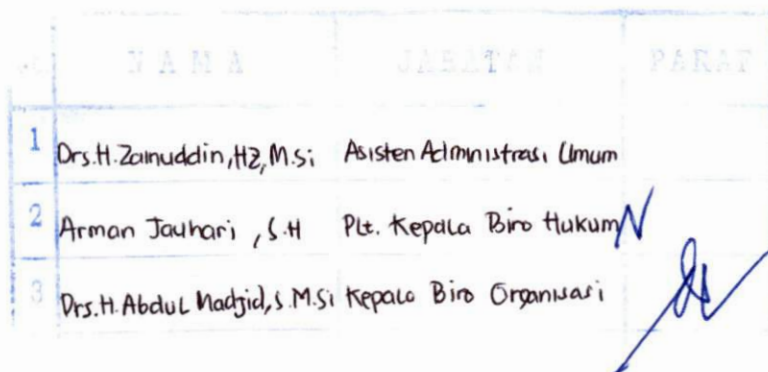 NO NAMA JABATAN PARAF
1 Drs.H.Zainuddin,HZ,M.Si Asisten Administrasi Umum
2 Arman Jauhari ,S.H Plt. Kepala Biro Hukum
3 Drs.H.Abdul Madjid,S.M.Si Kepala Biro Organisasi